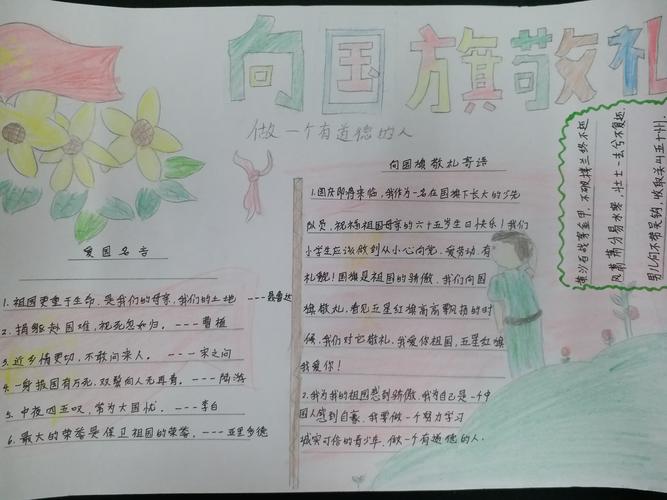 向国旗敬礼
做一个有道德的人
爱国名言
1.祖国更重于生命,是我们的母亲,我们的土地 ---聂鲁达
2.捐躯赴国难,视死忽如归。----曹植
3.近乡情更切,不敢问来人。----宋之问
4.一身报国有万死,双鬓向人无再青。----陆游
5.中夜四五叹,常为大国忧。----李白
6.最大的荣誉是保卫祖国的荣誉。----亚里多德
向国旗敬礼寄语
1.国庆即将来临,我作为一名在国旗下长大的少先
队员,祝福祖国母亲的六十五岁生日快乐!我们
小学生应该做到从小心向党、爱劳动、有
礼貌!国旗是祖国的骄傲,我们向国
旗敬礼,看见五星红旗高高飘扬的时
候,我们对它敬礼,我爱你祖国,五星红旗
我爱你!
2.我为我的祖国感到骄傲,我为自己是一个中
国人感到自豪,我要做一个努力学习
诚实可信的青少年,做一个有道德的人.
男儿何不带吴钩,收取关山五十州.
风萧萧兮易水寒,壮士一去兮不复还.
黄沙百战穿金甲,不破楼兰终不还